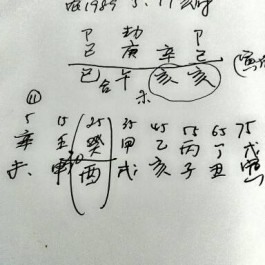 1989 5. 17
P 劫 P
己 庚 辛 己
巳 合 午 亥 亥
未
⑪
5 15 25 35 45 55 65 75
辛 壬 癸 甲 乙 丙 丁 戊
未 申 酉 戌 亥 子 丑 寅